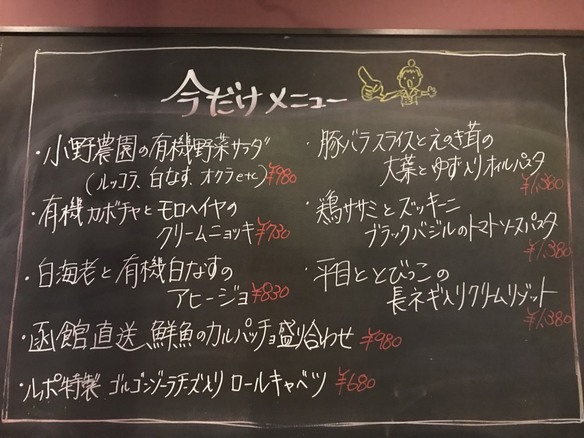 今だけメニュー
・小野農園の有機野菜サラダ
(ルッコラ、白なす、オクラetc) ¥980
・有機カボチャとモロヘイヤの
クリームニョッキ ¥730
・白海老と有機白なすの
アヒージョ ¥830
・函館直送、鮮魚のカルパッチョ盛り合わせ ¥980
・ルポ特製 ゴルゴンゾーラチーズ入り ロールキャベツ ¥680
・豚バラスライスとえのき茸の
大葉とゆず入りオイルパスタ
¥1,380
・鶏ササミとズッキーニ
ブラックバジルのトマトソースパスタ
¥1,380
・平目ととびっこの
長ネギ入りクリームリゾット
¥1,380